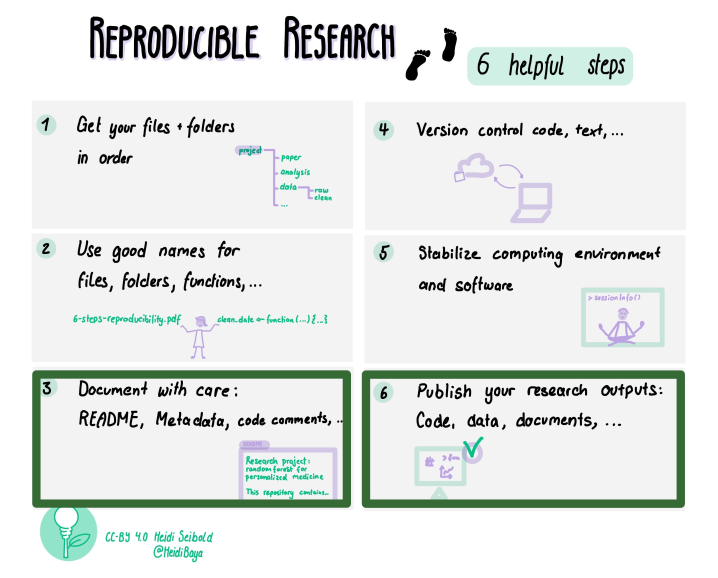 REPRODUCIBLE RESEARCH
6 helpful steps
1 Get your files + folders
in order
project
paper
analysis
data
raw
clean
...
2 Use good names for
files, folders, functions,...
6-steps-reproducibility.pdf
clean_date <- function(...){...}
3 Document with care:
README, Metadata, code comments, ..
README
Research project:
random forest for
personalized medicine
This repository contains...
4 Version control code, text,...
5 Stabilize computing environment
and software
> sessionInfo()
6 Publish your research outputs:
Code, data, documents, ...
CC-BY 4.0 Heidi Seibold
@HeidiBaya